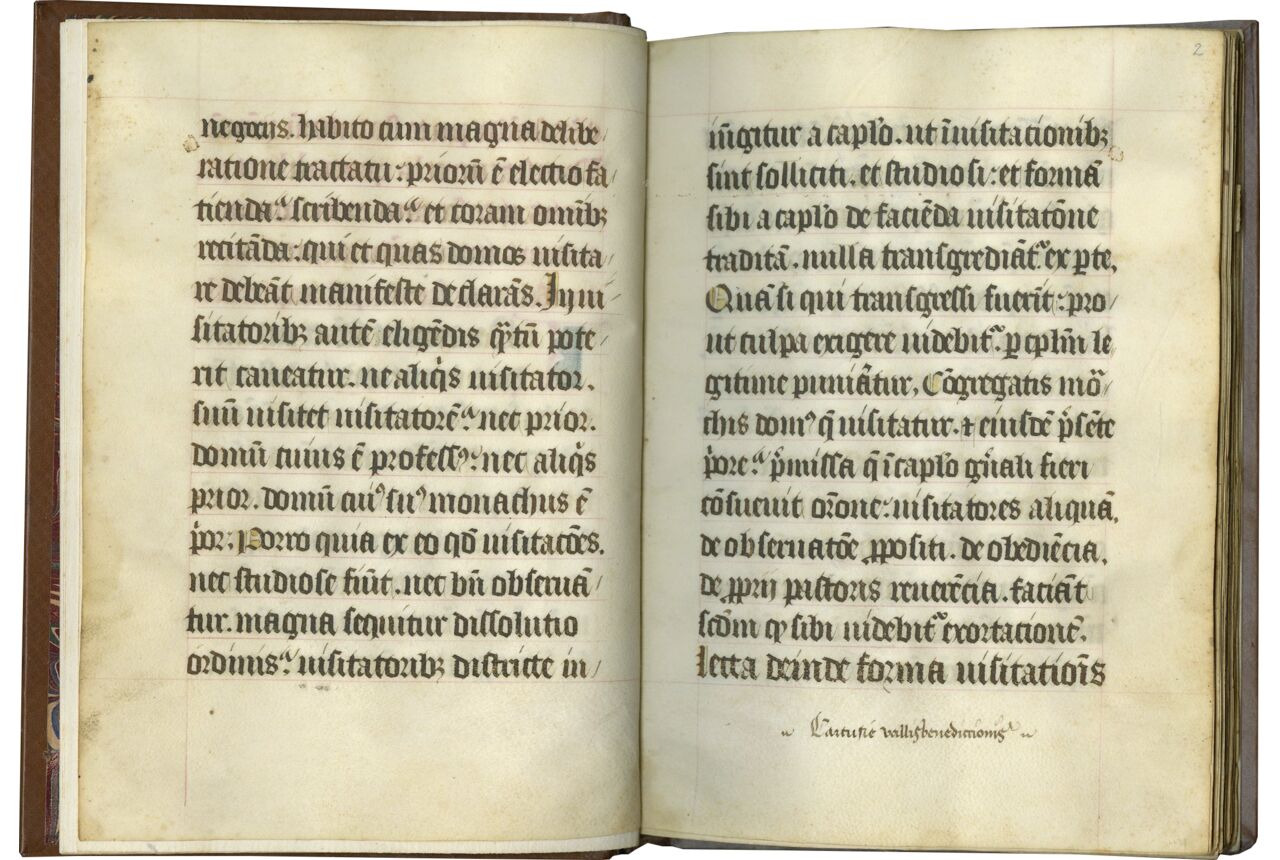 negociis. habito cum magna delibe/
ratione tractatu: priorū ē electio fa/
cienda: scribenda: et coram omībꝫ
recitāda: qui et quas domos uisita/
re debeāt manifeste declarās. In ui/
sitatoribꝫ autē eligēdis qͣtū pote/
rit caueatur. ne aliq̇s uisitator.
suū uisitet uisitatorē: nec prior.
domū cuius ē professꝰ: nec aliq̇s
prior. domū cuiꝰ suꝰ monachus ē
p̓or: Porro quia ex eo qd̄ uisitacōes.
nec studiose fiūt. nec bn̄ obseruā/
tur. magna sequitur dissolutio
ordinis: uisitatoribꝫ districte in/
2
iūgitur a capl̓o. ut ī uisitacionibꝫ
sint solliciti. et studiosi: et formā
sibi a capl̓o de faciēda uisitatōne
traditā. nulla transgrediāt᷑ ex ꝑte.
Quā si qui transgressi fuerīt: pro/
ut culpa exigere uidebit᷑. ꝑ cplm̄ le
gitime puniātur, Cōgregatis mōͣ/
chis domꝰ q̄ uisitatur. ⁊ eiusdē p̄sēte
p̓ore: p̓missa q̄ ī capl̓o gn̄ali fieri
cōsueuit orōne: uisitatores aliquā.
de obseruatōe ꝓpositi. de obediēcia.
de ꝓprij pastoris reuerēcia. faciāt
scd̄m qͣ sibi uidebit᷑ exortacionē.
Lecta deinde forma uisitatioīs
Cartusie vallisbenedictionis